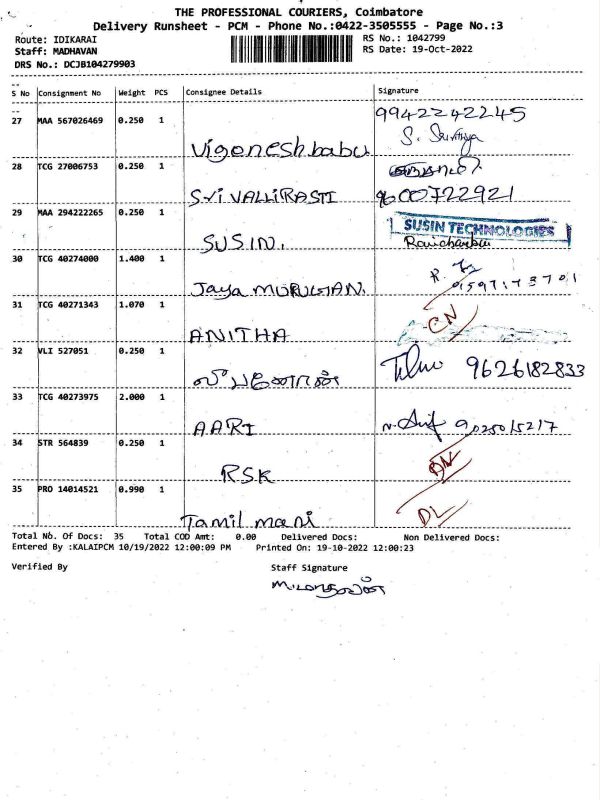 THE PROFESSIONAL COURIERS, Coimbatore
Delivery Runsheet - PCM - Phone No.:0422-3505555 - Page No.:3
Route: IDIKARAI
RS No.: 1042799
Staff: MADHAVAN
RS Date: 19-Oct-2022
DRS No.: DCJB104279903
S No Consignment No Weight PCS Consignee Details Signature
27 MAA 567026469 0.250 1 Vigoneshbabu 9942242245
28 TCG 27006753 0.250 1 Sri VALLIRASTI 9600722921
29 MAA 294222265 0.250 1 SUSIN. SUSIN TECHNOLOGIES
30 TCG 40274000 1.400 1 Jaya MURUGAN.
31 TCG 40271343 1.070 1 ANITHA CN
32 VLI 527051 0.250 1 9626182833
33 TCG 40273975 2.000 1 AARI
34 STR 564839 0.250 1 RSK
35 PRO 14014521 0.990 1 Tamil mani DL
Total No. Of Docs: 35 Total COD Amt: 0.00 Delivered Docs: Non Delivered Docs:
Entered By :KALAIPCM 10/19/2022 12:00:09 PM Printed On: 19-10-2022 12:00:23
Verified By Staff Signature